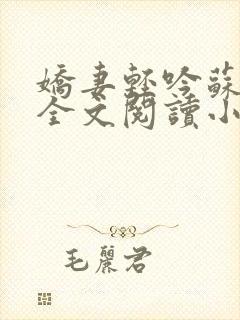 嬌妻輕吟蘇
全文閱讀小
毛麗君